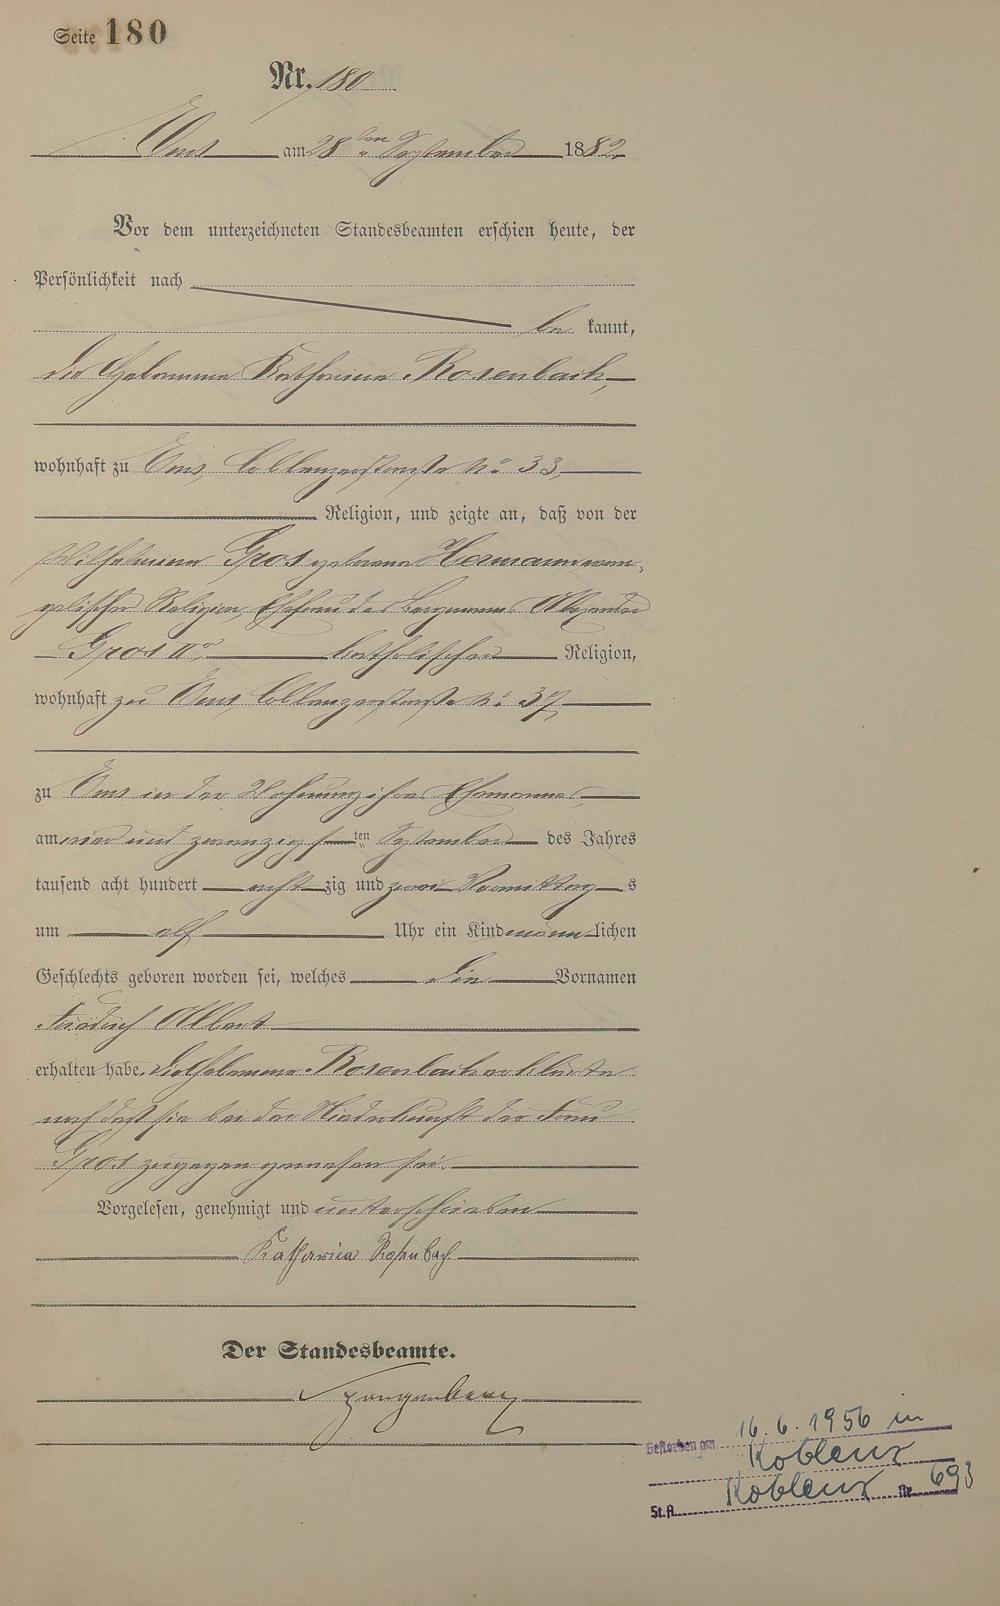 Seite 180
Nr. 180
Ems am 28ten September 1882
Vor dem unterzeichneten Standesbeamten erschien heute, der
Persönlichkeit nach
be kannt,
die Hebamme Katharina Rosenbach,
wohnhaft zu Ems, Coblenzerstraße No 33,
Religion, und zeigte an, daß von der
Wilhelmina Gros geborene Hermann, evan-
gelischer Religion, Ehefrau des Bergmanns Alexander
Gros IIr, katholischer Religion,
wohnhaft zu Ems, Coblenzerstraße No 37,
zu Ems in der Wohnung ihres Ehemannes,
am vier und zwanzigsten September des Jahres
tausend acht hundert acht zig und zwei Vormittag s
um elf Uhr ein Kind männ lichen
Geschlechts geboren worden sei, welches die Vornamen
Friedrich Albert
erhalten habe. Die Hebamme Rosenbach erklärte
noch daß sie bei der Niederkunft der Frau
Gros zugegen gewesen sei.
Vorgelesen, genehmigt und unterschrieben
Katharina Rosenbach
Der Standesbeamte.
Gestorben am 16.6.1956 in
Koblenz
St.A. Koblenz Nr. 693